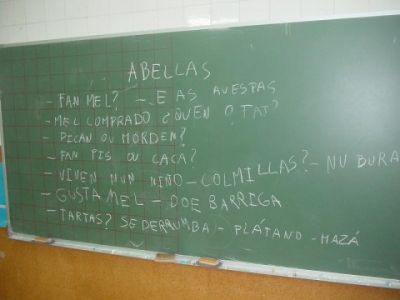 ABELLAS
- FAN MEL? - E AS AVESPAS
- MEL COMPRADO ¿QUEN O FAI?
- PICAN OU MORDEN?
- FAN PIS OU CACA?
- VIVEN NUN NIÑO - COLMILLAS? - NU BURA
- GUSTA MEL - DOE BARRIGA
- TARTAS? SE DERRUMBA - PLÁTANO - MAZÁ